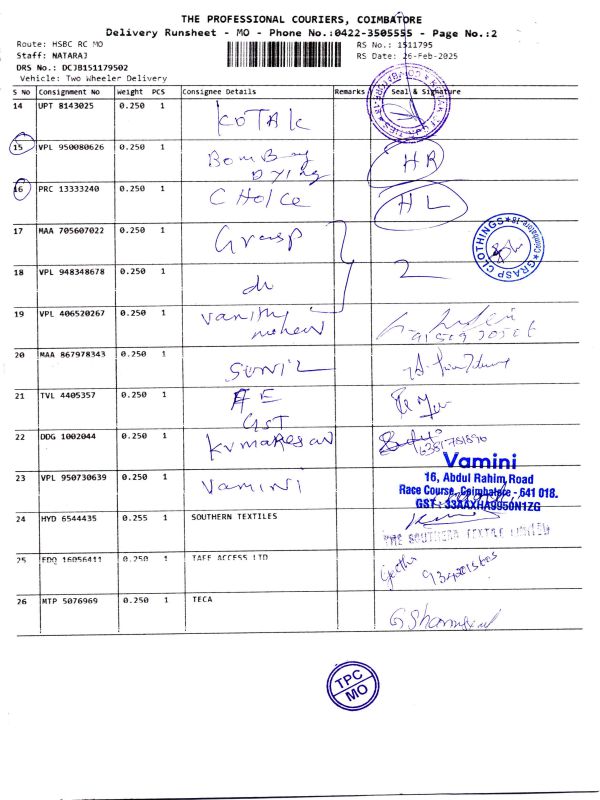 THE PROFESSIONAL COURIERS, COIMBATORE
Delivery Runsheet - MO - Phone No.:0422-3505555 - Page No.:2
Route: HSBC RC MO
RS No.: 1511795
Staff: NATARAJ
RS Date: 26-Feb-2025
DRS No.: DCJB151179502
Vehicle: Two Wheeler Delivery
S No Consignment No Weight PCS Consignee Details Remarks Seal & Signature
14 UPT 8143025 0.250 1 KOTAK
15 VPL 950080626 0.250 1 Bombay Dying HR
16 PRC 13333240 0.250 1 CHOICE HL
17 MAA 705607022 0.250 1 Grasp
GRASP CLOTHINGS Coimbatore-18
18 VPL 948348678 0.250 1 do 2
19 VPL 406520267 0.250 1 vanithy
20 MAA 867978343 0.250 1 SUNIL
21 TVL 4405357 0.250 1 AE
GST
22 DDG 1002044 0.250 1 Kumaresan
23 VPL 950730639 0.250 1 VAMINI
Vamini
16, Abdul Rahim Road
Race Course, Coimbatore - 641 018.
GST : 33AAXHA9950N1ZG
24 HYD 6544435 0.255 1 SOUTHERN TEXTILES
THE SOUTHERN TEXTILE LIMITED
25 EDQ 16056411 0.250 1 TAFE ACCESS LTD
Geetha
26 MTP 5076969 0.250 1 TECA
TPC
MO